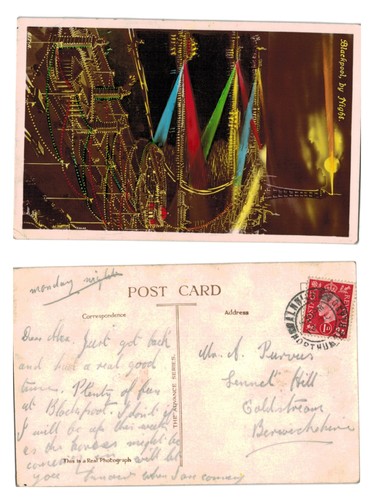 Blackpool, by Night.
monday night
POST CARD
Correspondence
Address
Dear Alec. Just got back
and had a real good
time. Plenty of fun
at Blackpool. I don't
I will be up this week
as the horses might be
will let
you know when I am coming
This is a Real Photograph
THE ADVANCE SERIES.
Mr. A Purves
Sennet Hill
Coldstream
Berwickshire
POSTAGE
REVENUE
1D